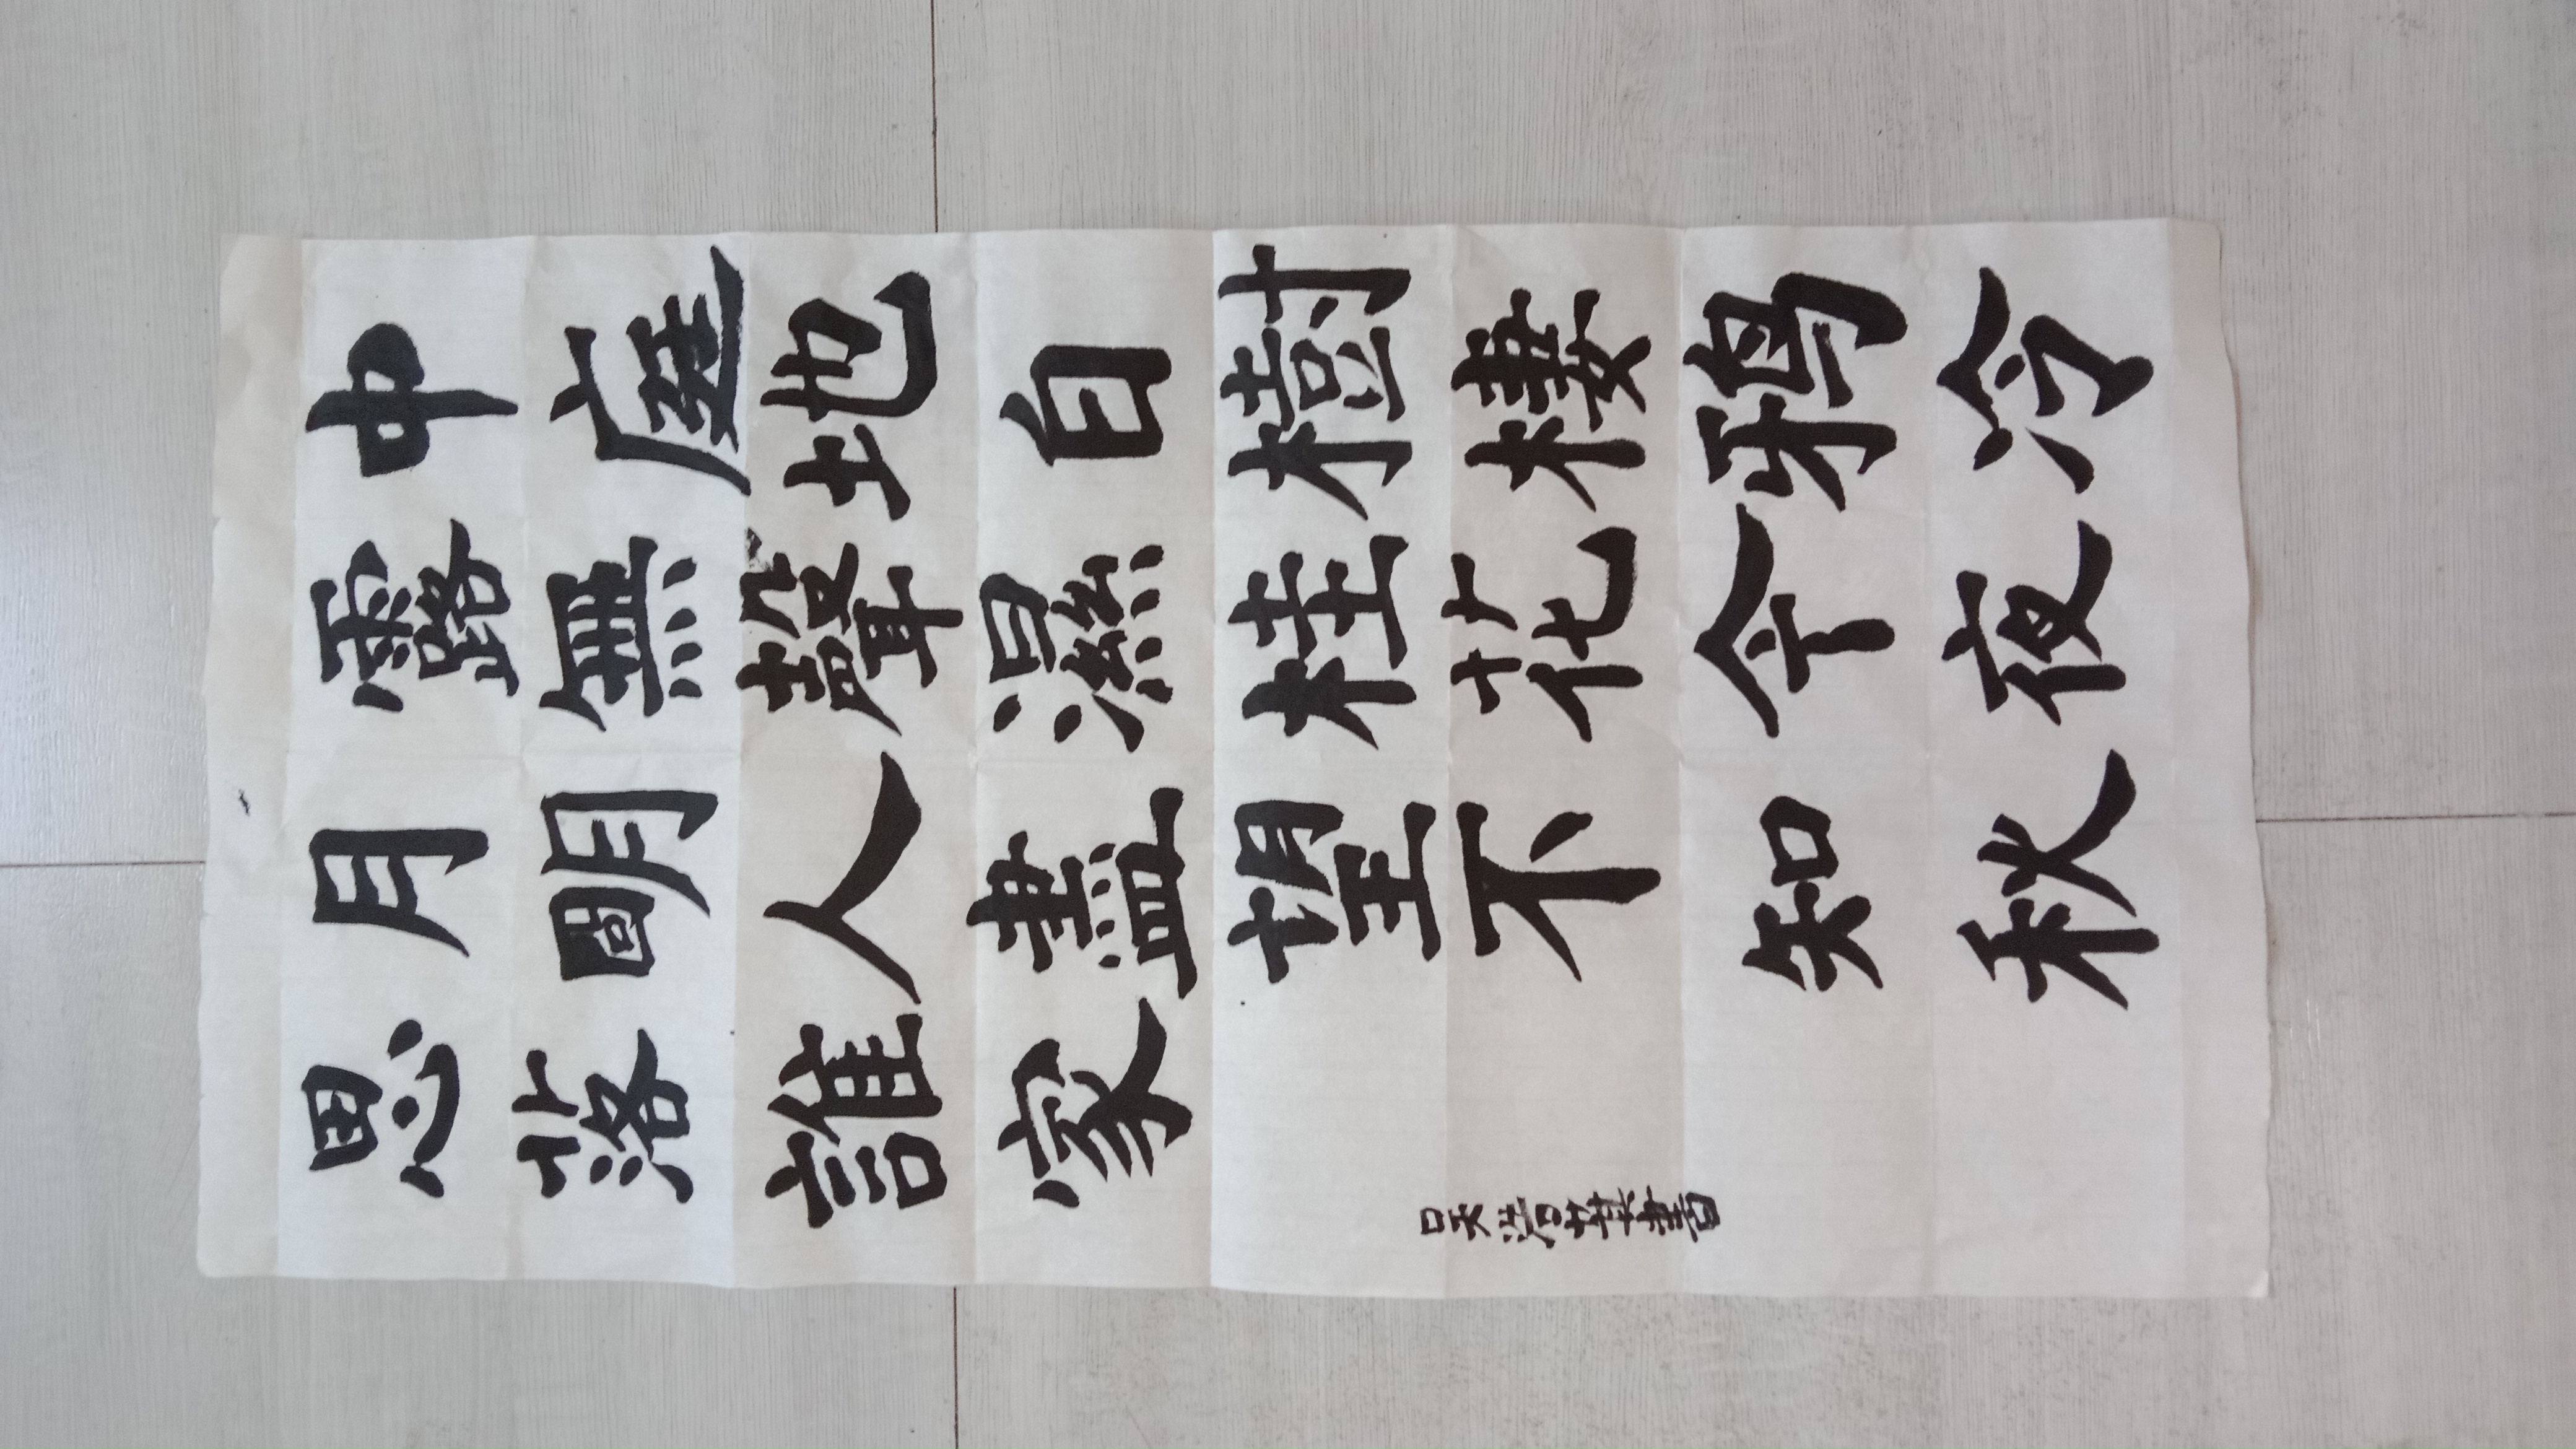 中庭地白樹棲鴉冷
露無聲濕桂花今夜
月明人盡望不知秋
思落誰家
吴書